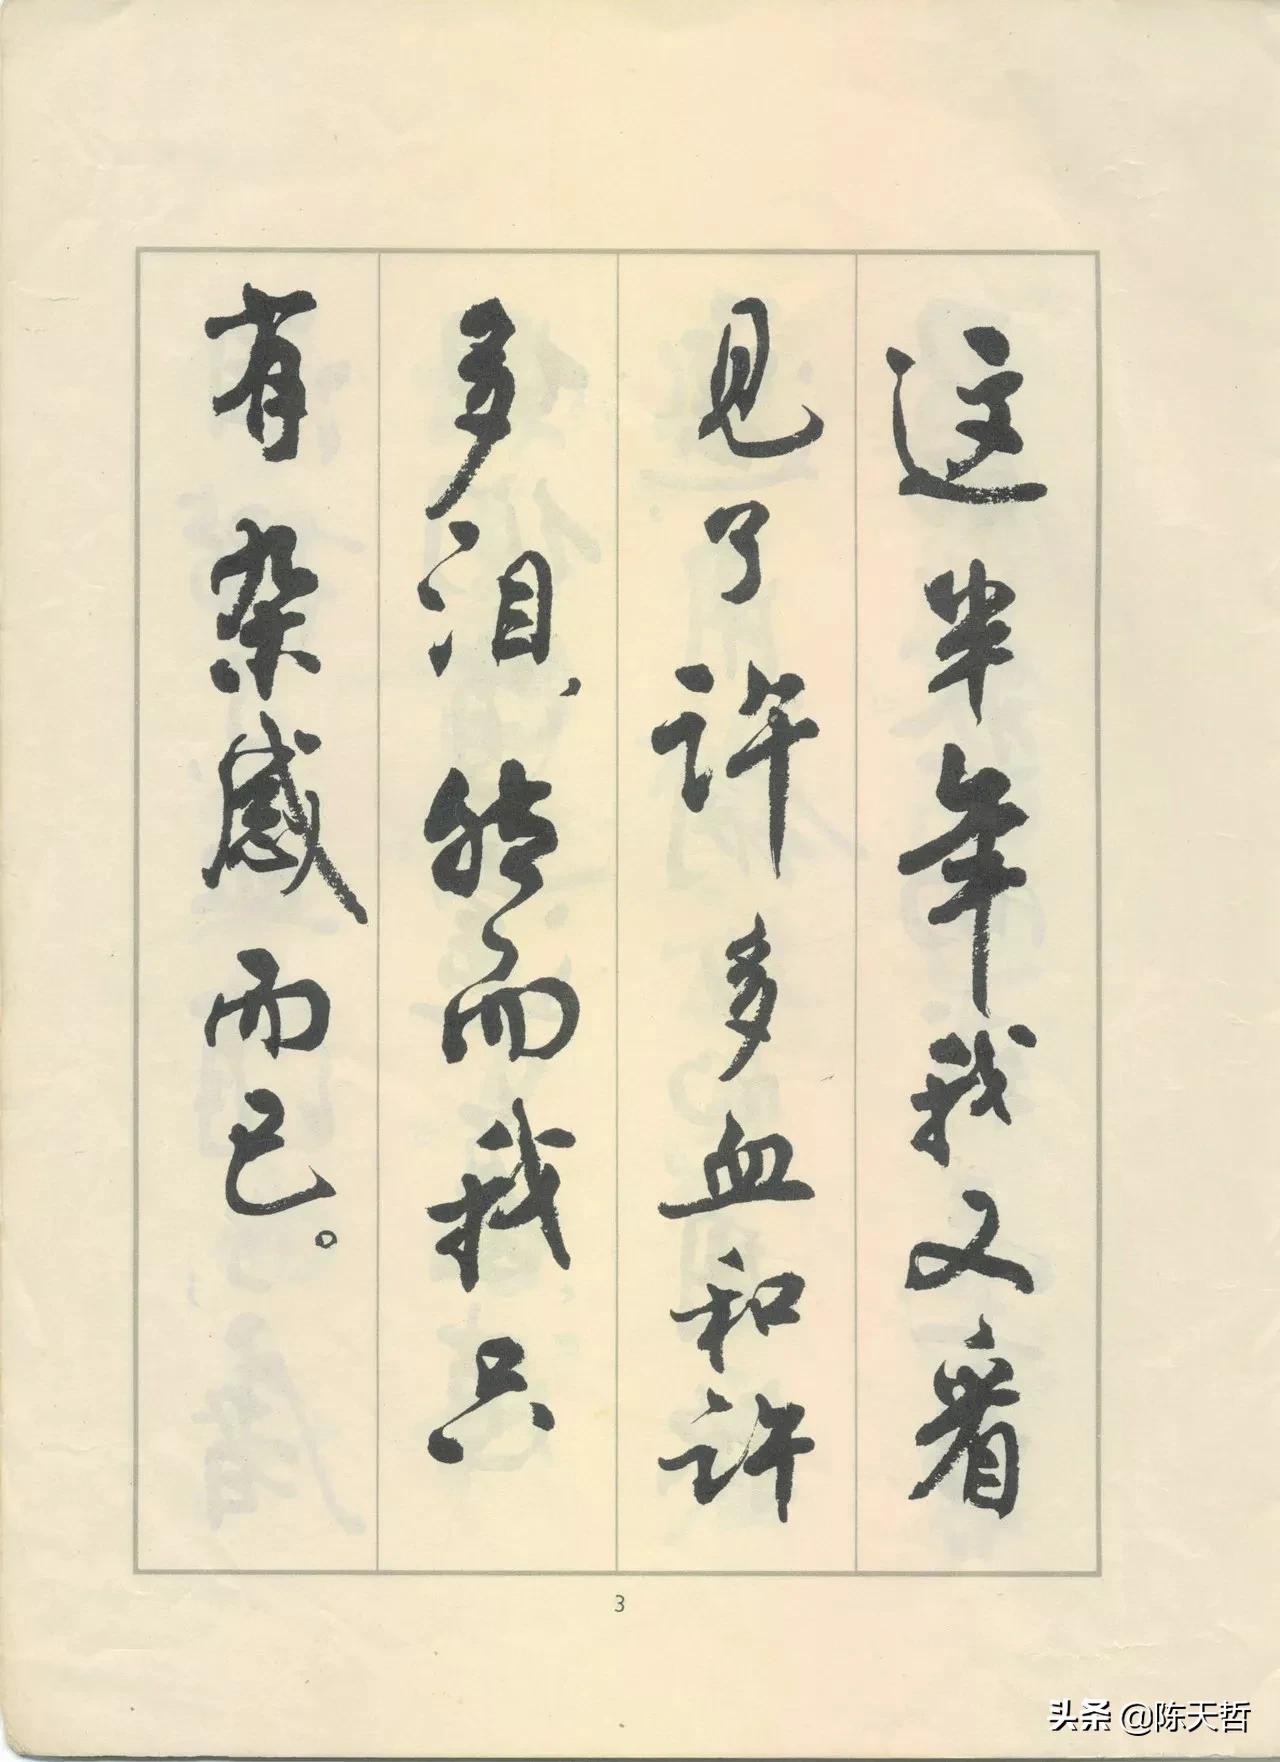 这半年我又看
见了许多血和许
多泪，然而我只
有杂感而已。
3
头条 @陈天哲